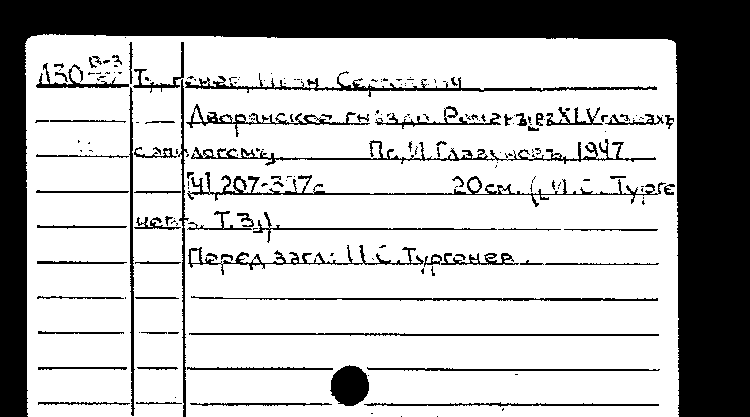 Л30 В-3 Тургенев, Иван Сергеевич
Дворянское гнѣздо. Романъ въ XLV главахъ
с эпилогомъ. Пг, И. Глазуновъ, 1947.
[4], 207-337с 20см. (И. С. Турге
невъ. Т. 3).
Перед загл.: И. С. Тургенев.